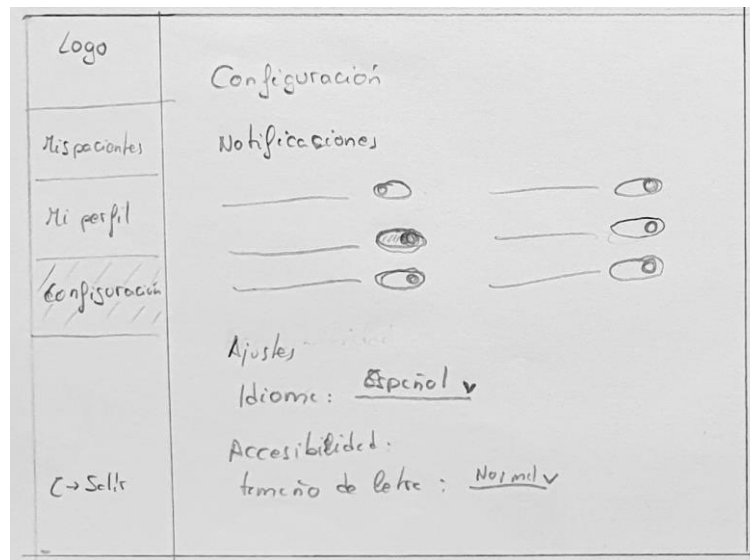 Logo
Mis pacientes
Mi perfil
Configuración
Salir
Configuración
Notificaciones
Ajustes
Idioma: Español
Accesibilidad:
tamaño de letra: Normal